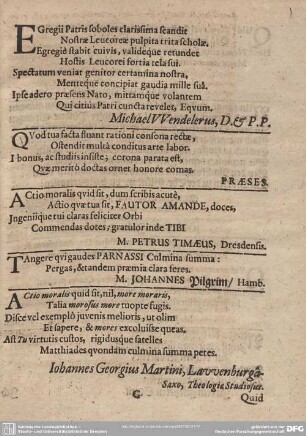 EGregii Patris soboles clarissima scandit
Nostræ Leucoreæ pulpita trita scholæ.
Egregiè stabit cuivis, valideque retundet
Hostis Leucorei fortia tela sui.
Spectatum veniat genitor certamina nostra,
Menteque concipiat gaudia mille suâ.
Ipse adero præsens Nato, mittamque volantem
Qui citiùs Patri cuncta revelet, Eqvum.
Michael VVendelerus, D. & P. P.
QVod tua facta fluant rationi consona rectæ,
Ostendit multâ conditus arte labor.
I bonus, ac studiis insiste; corona parata est,
Qvæ meritò doctas ornet honore comas.
PRÆSES.
ACtio moralis qvid sit, dum scribis acutè,
Actio qvæ tua sit, FAUTOR AMANDE, doces,
Ingeniique tui claras feliciter Orbi
Commendas dotes; gratulor inde TIBI
M. PETRUS TIMÆUS, Dresdensis.
TAngere qvi gaudes PARNASSI Culmina summa:
Pergas, & tandem præmia clara feres.
M. JOHANNES Pilgrim/ Hamb.
ACtio moralis quid sit, nil, more moraris,
Talia morosus more tuopte fugis.
Disce vel exemplô juvenis melioris, ut olim
Et sapere, & mores excoluisse queas.
Ast Tu virtutis custos, rigidusque satelles
Matthiades qvondam culmina summa petes.
Iohannes Georgius Martini, Lavvenburgâ-
Saxo, Theologiæ Studiosus.
G
Quid